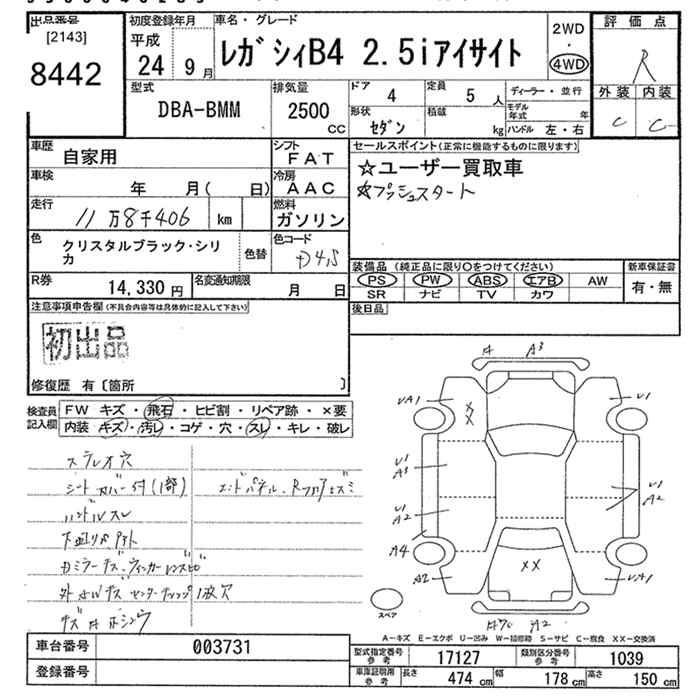 出品番号
[2143]
8442
初度登録年月
平成
24 9月
車名・グレード
レガシィB4 2.5iアイサイト
2WD
・
4WD
評価点
R
外装 内装
C C
型式
DBA-BMM
排気量
2500
cc
ドア
4
定員
5人
形状
セダン
積載
kg
ディーラー・並行
モデル年式 年
ハンドル 左・右
車歴
自家用
シフト
FAT
車検
年 月( 日)
冷房
AAC
走行
11万8千406 km
燃料
ガソリン
色
クリスタルブラック・シリカ
色替
色コード
D4S
R券
14,330円
名変通知期限
月 日
セールスポイント(正常に機能するものに限ります)
☆ユーザー買取車
☆プッシュスタート
装備品(純正品に限り○をつけてください)
PS PW ABS エアB AW
SR ナビ TV カワ
新車保証書
有・無
後日品
注意事項申告欄(不具合内容等は具体的に記入して下さい)
初出品
修復歴 有〔箇所 〕
検査員記入欄
FW キズ・飛石・ヒビ割・リペア跡・×要
内装 キズ・汚レ・コゲ・穴・スレ・キレ・破レ
ステレオ穴
シートカバー付(1部)
ハンドルスレ
エンドパネル、Rフロアヒズミ
A A3
UA1
XX
U1
U1
A3
U1
A2
A4
A2
A2
UA1
XX
A2
スペア
A-キズ E-エクボ U-凹み W-補修跡 S-サビ C-腐食 XX-交換済
車台番号
003731
登録番号
型式指定番号
参考
17127
類別区分番号
参考
1039
車庫証明用
参考
長さ 474cm 幅 178cm 高さ 150cm